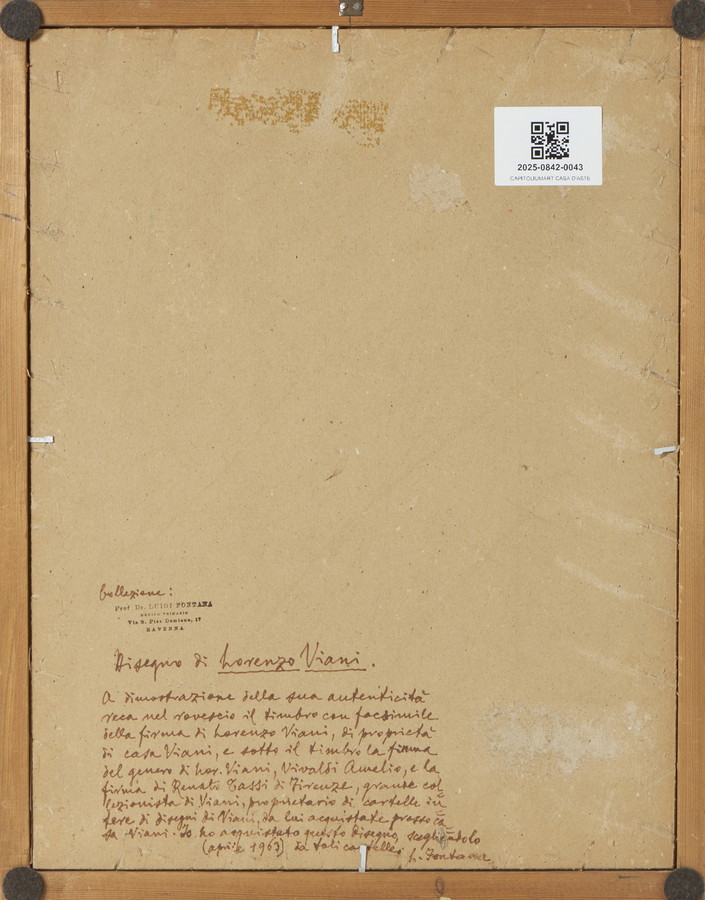 2025-0842-0043
CAPITOLIUMART CASA D'ASTE
Collezione:
Prof. Dr. LUIGI FONTANA
MEDICO PRIMARIO
Via S. Pier Damiano, 17
RAVENNA
Disegno di Lorenzo Viani.
A dimostrazione della sua autenticità
reca nel rovescio il timbro con facsimile
della firma di Lorenzo Viani, di proprietà
di casa Viani, e sotto il timbro la firma
del genero di Lor. Viani, Vivaldi Amelio, e la
firma di Renato Tassi di Firenze, grande col
lezionista di Viani, proprietario di cartelle in
tere di disegni di Viani, da lui acquistate presso ca
sa Viani. Io ho acquistato questo disegno, scegliendolo
(aprile 1963) da tali cartelle. L. Fontana